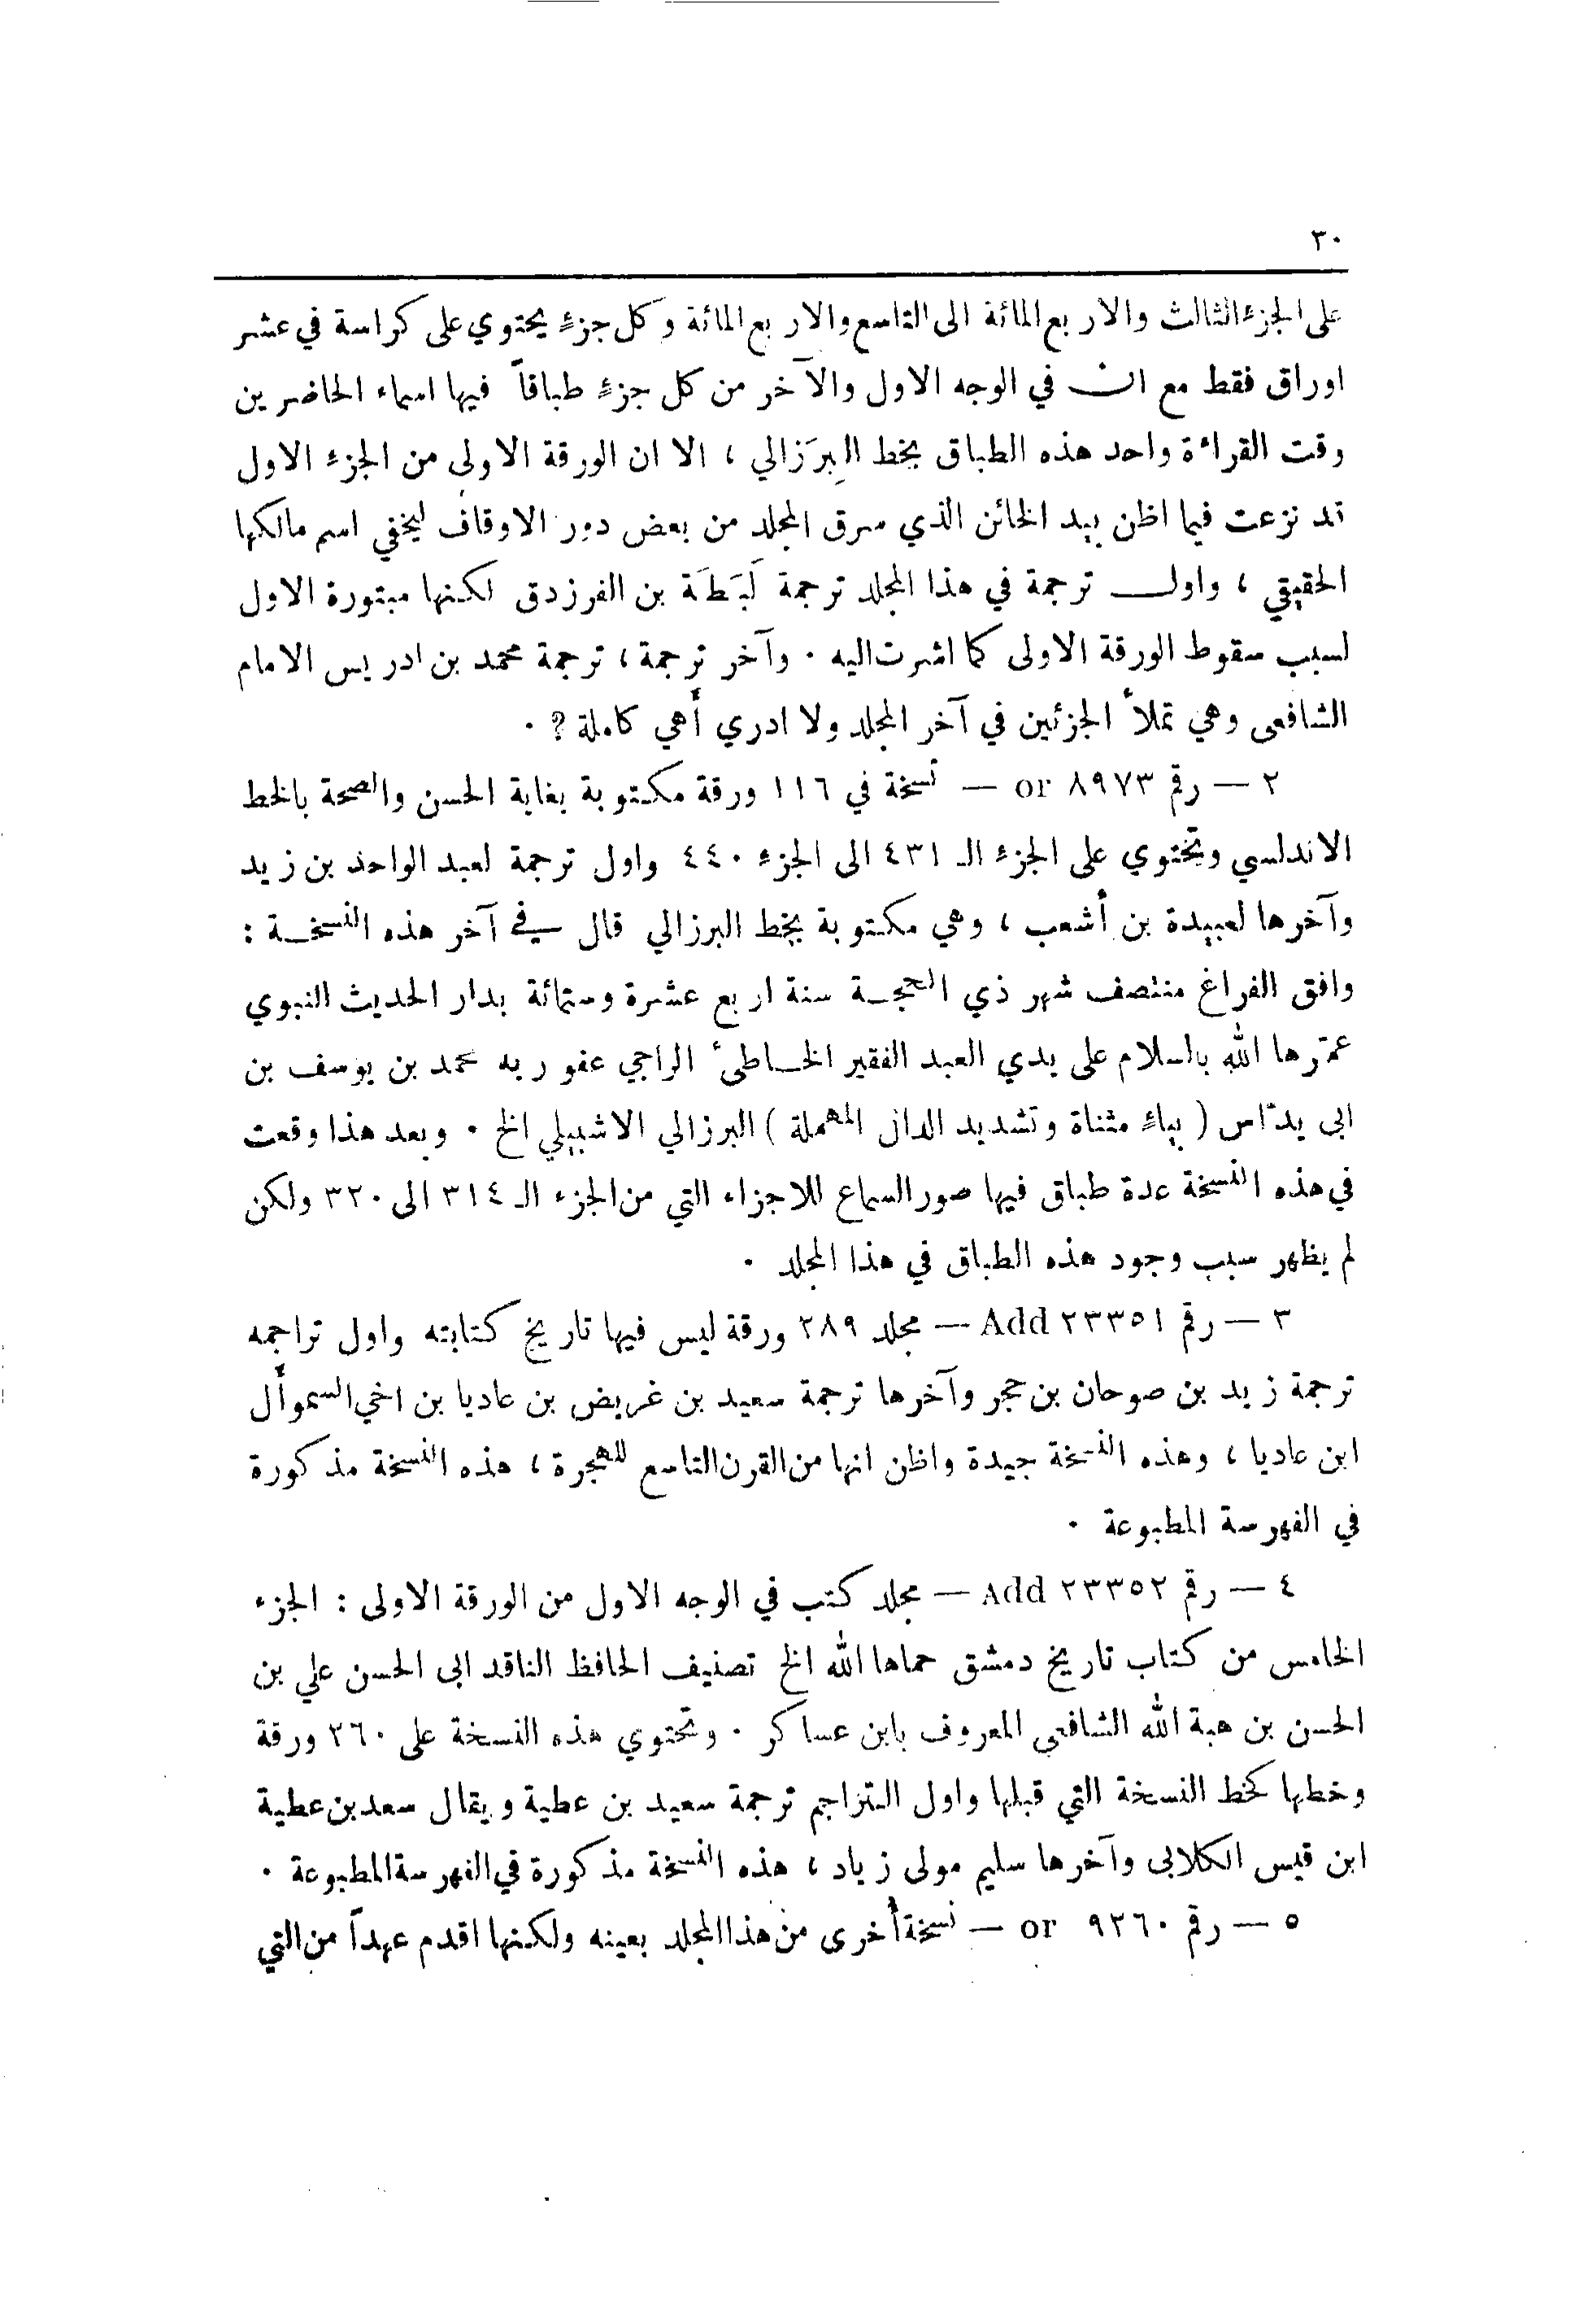 ٣٠
على الجزء الثالث والاربع المائة الى التاسع والاربع المائة وكل جزءٍ يحتوي على كراسة في عشر
اوراق فقط مع ان في الوجه الاول والآخر من كل جزءٍ طباقاً فيها اسماء الحاضرين
وقت القراءة واحد هذه الطباق بخط البِرَزالي ، الا ان الورقة الاولى من الجزء الاول
قد نزعت فيما اظن بيد الخائن الذي سرق المجلد من بعض دور الاوقاف ليخفي اسم مالكها
الحقيقي ، واول ترجمة في هذا المجلد ترجمة لَبَطَة بن الفرزدق لكنها مبتورة الاول
لسبب سقوط الورقة الاولى كما اشرت اليه . وآخر ترجمة ، ترجمة محمد بن ادريس الامام
الشافعي وهي تملأ الجزئين في آخر المجلد ولا ادري أهي كاملة ? .
٢ — رقم ٨٩٧٣ or — نسخة في ١١٦ ورقة مكتوبة بغاية الحسن والصحة بالخط
الاندلسي وتحتوي على الجزء الـ ٤٣١ الى الجزء ٤٤٠ واول ترجمة لعبد الواحد بن زيد
وآخرها لعبيدة بن أشعب ، وهي مكتوبة بخط البرزالي قال في آخر هذه النسخة :
وافق الفراغ منتصف شهر ذي الحجة سنة اربع عشرة وستمائة بدار الحديث النبوي
عمّرها الله بالسلام على يدي العبد الفقير الخاطئ الراجي عفو ربه محمد بن يوسف بن
ابي يدّاس ( بياءٍ مثناة وتشديد الدال المهملة ) البرزالي الاشبيلي الخ . وبعد هذا وقعت
في هذه النسخة عدة طباق فيها صور السماع للاجزاء التي من الجزء الـ ٣١٤ الى ٣٢٠ ولكن
لم يظهر سبب وجود هذه الطباق في هذا المجلد .
٣ — رقم ٢٣٣٥١ Add — مجلد ٢٨٩ ورقة ليس فيها تاريخ كتابته واول تراجمه
ترجمة زيد بن صوحان بن حجر وآخرها ترجمة سعيد بن غريض بن عاديا بن اخي السموأل
ابن عاديا ، وهذه النسخة جيدة واظن انها من القرن التاسع للهجرة ، هذه النسخة مذكورة
في الفهرسة المطبوعة .
٤ — رقم ٢٣٣٥٢ Add — مجلد كتب في الوجه الاول من الورقة الاولى : الجزء
الخامس من كتاب تاريخ دمشق حماها الله الخ تصنيف الحافظ الناقد ابي الحسن علي بن
الحسن بن هبة الله الشافعي المعروف بابن عساكر . وتحتوي هذه النسخة على ٢٦٠ ورقة
وخطها كخط النسخة التي قبلها واول التراجم ترجمة سعيد بن عطية ويقال سعد بن عطية
ابن قيس الكلابي وآخرها سليم مولى زياد ، هذه النسخة مذكورة في الفهرسة المطبوعة .
٥ — رقم ٩٢٦٠ or — نسخة أخرى من هذا المجلد بعينه ولكنها اقدم عهداً من التي